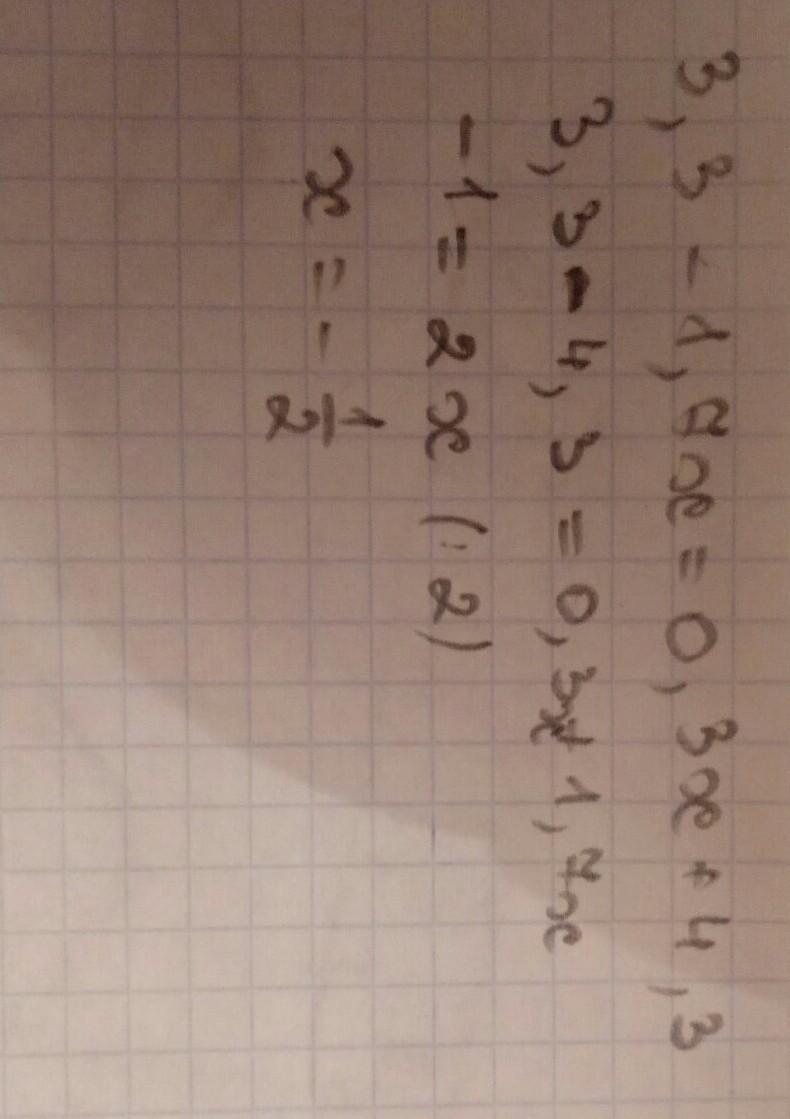 3,3 - 1,7x = 0,3x + 4,3
3,3 - 4,3 = 0,3x + 1,7x
-1 = 2x (: 2)
x = - 1/2